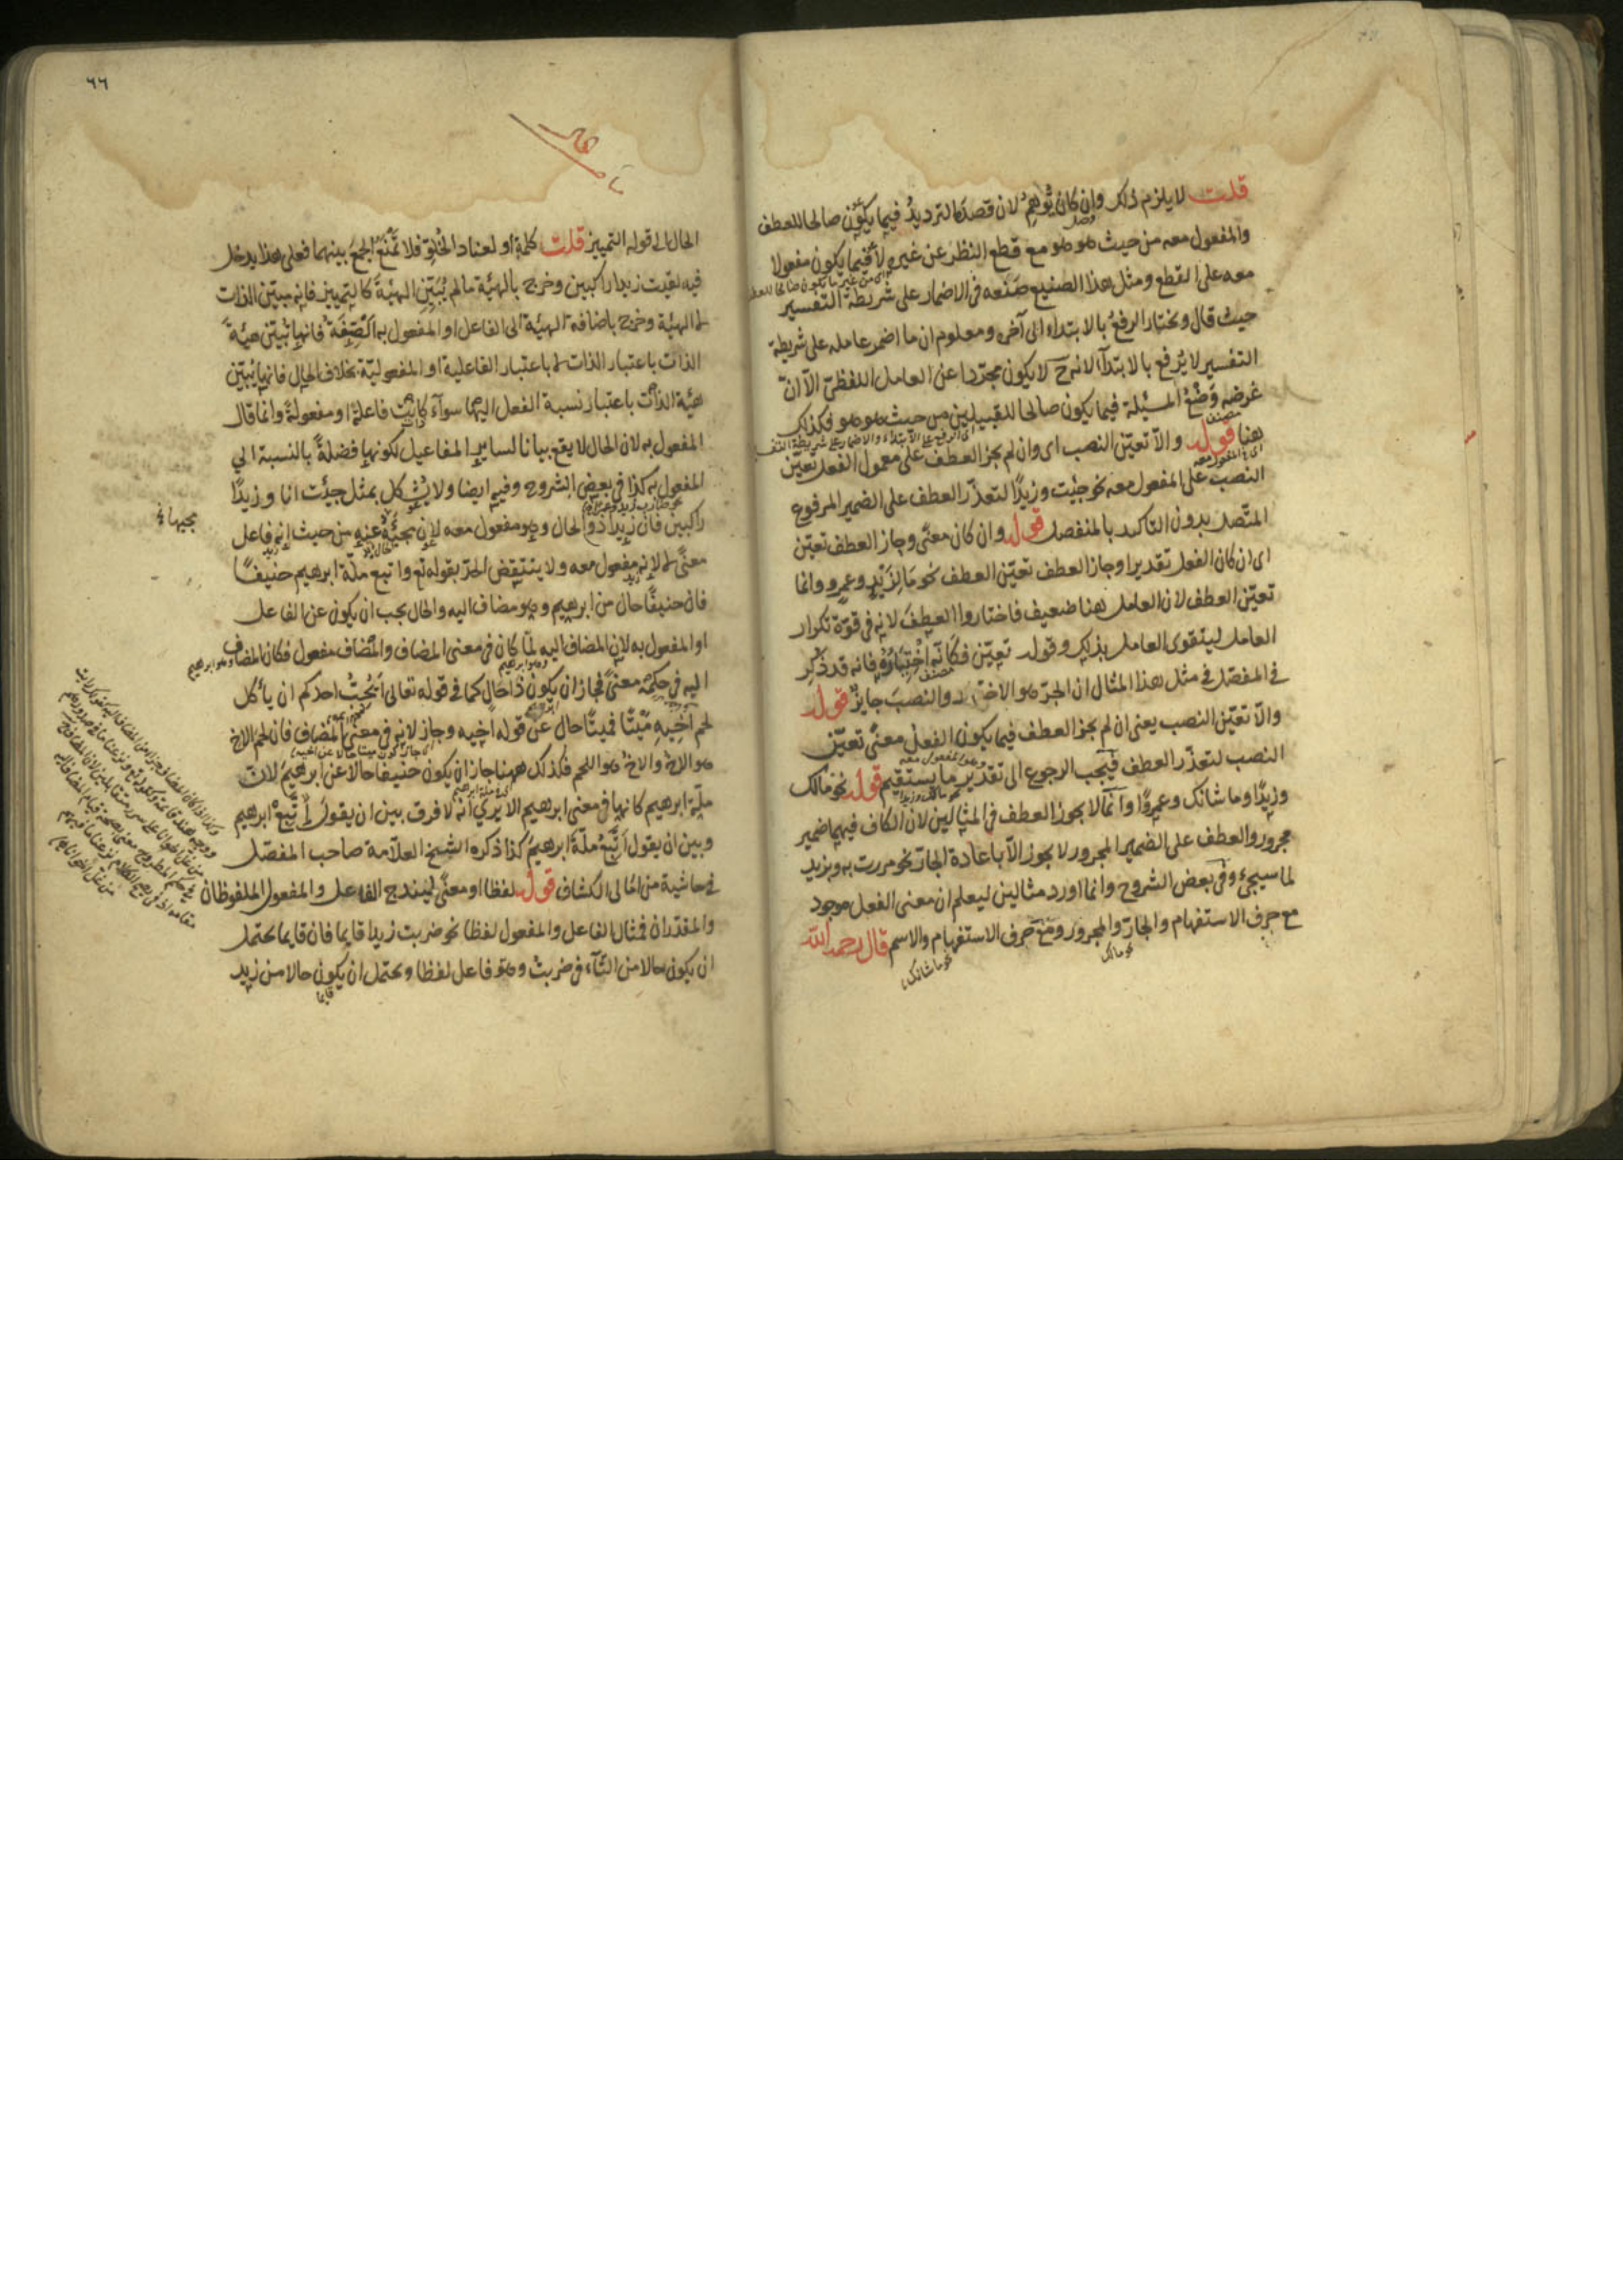 قلت لا يلزم ذلك وان كان يوهم لان قصده الترديد فيما يكون صالحا للعطف
والمفعول معه من حيث هو هو مع قطع النظر عن غيره لا فيما يكون مفعولا
معه على القطع ومثل هذا الصنيع صنعه في الاضمار على شريطة التفسير
حيث قال ويختار الرفع بالابتداء الى آخره ومعلوم ان ما اضمر عامله على شريطة
التفسير لا يرفع بالابتدآ لانه ح لا يكون مجردا عن العامل اللفظي الا انّ
غرضه وَضْعُ المسئلة فيما يكون صالحا للقبيلين من حيث هو هو فكذلك
هنا قوله والّا تعيّن النصب اى وان لم يجز العطف على معمول الفعل تعيّن
النصب على المفعول معه نحو جئت وزيدًا لتعذّر العطف على الضمير المرفوع
المتّصل بدون التاكيد بالمنفصل قوله وان كان معنًى وجاز العطف تعيّن
اى ان كان الفعل تقديرا وجاز العطف تعيّن العطف نحو مَا لِزَيْدٍ وعمرو وانما
تعيّن العطف لان العامل هنا ضعيف فاختاروا العطف لانه في قوّة تكرار
العامل ليتقوى العامل بذلك وقوله تعيّن فكانه اختياره فانه قد ذكر
في المفصّل في مثل هذا المثال ان الجرّ هو الاختيار والنصب جايز قوله
والّا تعيّن النصب يعنى ان لم يجز العطف فيما يكون الفعل معنًى تعيّن
النصب لتعذّر العطف فيجب الرجوع الى تقدير ما يستقيم قوله نحو مالك
وزيدًا وما شانك وعمروًا وانّما لا يجوز العطف في المثالين لان الكاف فيهما ضمير
مجرور والعطف على الضمير المجرور لا يجوز الّا باعادة الجارّ نحو مررت به وبزيد
لما سيجئ وفي بعض الشروح وانما اورد مثالين ليعلم ان معنى الفعل موجود
مع حرف الاستفهام والجارّ والمجرور ومع حرف الاستفهام والاسم قال رحمه الله
نحو مالك
نحو ما شانك
٦٦
الحال الى قوله التمييز قلت كلمة او لعناد الخلوّ فلا تمنع الجمع بينهما فعلى هذا يدخل
فيه لقيت زيدا راكبين وخرج بالهيئة ما لم يُبيّن الهيئة كالتمييز فانه مبيّن الذات
لا الهيئة وخرج باضافة الهيئة الى الفاعل او المفعول به الصّفة فانها تبيّن هيئة
الذات باعتبار الذات لا باعتبار الفاعلية او المفعوليّة بخلاف الحال فانها يُبيّن
هيئة الذات باعتبار نسبة الفعل اليهما سوآء كانت فاعلة او مفعولة وانما قال
المفعول به لان الحال لا يقع بيانا لساير المفاعيل لكونها فضلةً بالنسبة الى
المفعول به كذا في بعض الشروح وفيه ايضا ولا يشكل بمثل جئت انا وزيدًا
راكبين فان زيدا ذو الحال وهو مفعول معه لان مجيئه عنه من حيث انه فاعل
معنًى لا لانه مفعول معه ولا ينتقض الحدّ بقوله تع واتبع ملّة ابرهيم حنيفًا
فان حنيفًا حال من ابرهيم وهو مضاف اليه والحال يجب ان يكون عن الفاعل
او المفعول به لان المضاف اليه لمّا كان في معنى المضاف والمضاف مفعول فكان المضاف
اليه في حكمه معنًى فجاز ان يكون ذا حال كما في قوله تعالى ايحبّ احدكم ان يأكل
لحم اخيه ميّتًا فميتًا حال عن قوله اخيه وجاز لانه في معنى المضاف فان لحم الاخ
هو الاخ والاخ هو اللحم فكذلك ههنا جاز ان يكون حنيفا حالا عن ابرهيم لانّ
ملّة ابرهيم كانها في معنى ابرهيم الا يرى انه لا فرق بين ان يقول اتّبع ابرهيم
وبين ان يقول اتّبع ملّة ابرهيم كذا ذكره الشيخ العلّامة صاحب المفصّل
في حاشية من امالى الكشاف قوله لفظا او معنًى ليندرج الفاعل والمفعول الملفوظان
والمقدّران فمثال الفاعل والمفعول لفظا نحو ضربت زيدا قايما فان قايما يحتمل
ان يكون حالا من التّآء في ضربت وهو فاعل لفظا ويحتمل ان يكون حالا من زيد
قايما